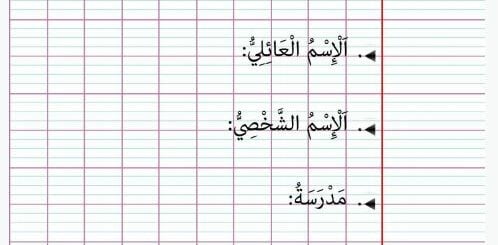 . اَلْإِسْمُ الْعَائِلِيُّ:
. اَلْإِسْمُ الشَّخْصِيُّ:
. مَدْرَسَةُ: